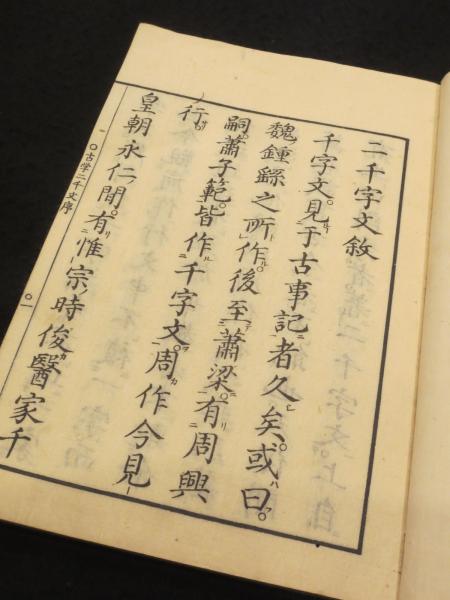 二千字文敘
千字文見于古事記者久矣或曰
魏鍾繇之所作後至蕭梁有周興
嗣蕭子範皆作千字文周作今見
行
皇朝永仁間有惟宗時俊醫家千
〇古学二千文序
〇一